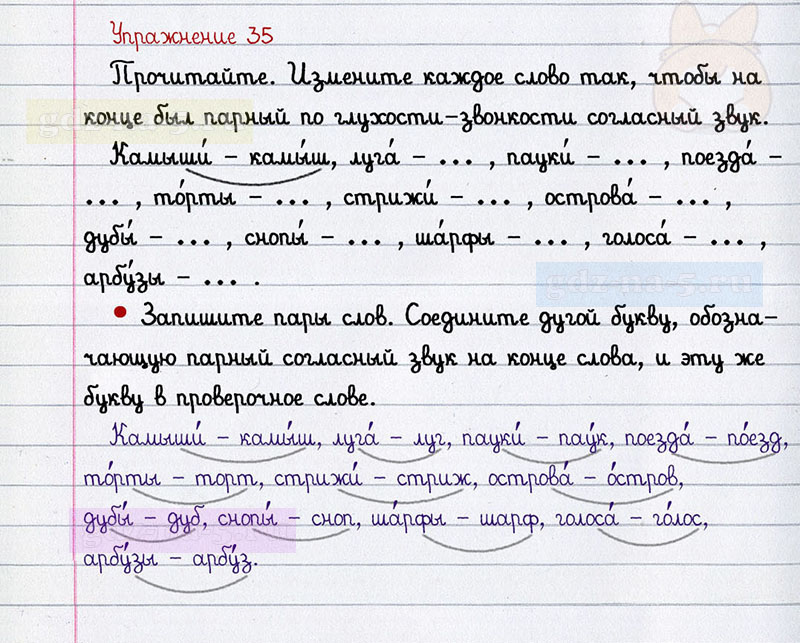 Упражнение 35
Прочитайте. Измените каждое слово так, чтобы на
конце был парный по глухости-звонкости согласный звук.
Камыши́ – камы́ш, луга́ – ... , пауки́ – ... , поезда́ –
... , то́рты – ... , стрижи́ – ... , острова́ – ... ,
дубы́ – ... , снопы́ – ... , ша́рфы – ... , голоса́ – ... ,
арбу́зы – ... .
• Запишите пары слов. Соедините дугой букву, обозна-
чающую парный согласный звук на конце слова, и эту же
букву в проверочное слове.
Камыши́ – камы́ш, луга́ – луг, пауки́ – пау́к, поезда́ – по́езд,
то́рты – торт, стрижи́ – стриж, острова́ – о́стров,
дубы́ – дуб, снопы́ – сноп, ша́рфы – шарф, голоса́ – го́лос,
арбу́зы – арбу́з.
gdz-na-5.ru